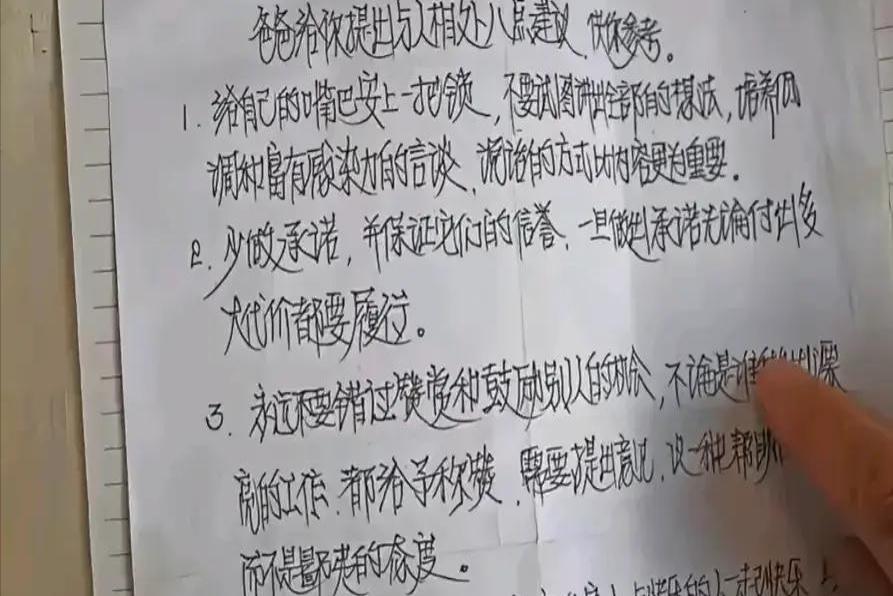 爸爸给你提出与人相处八点建议,供你参考。
1. 给自己的嘴巴安上一把锁,不要试图讲出全部的想法,培养低
调和富有感染力的言谈、说话的方式比内容更为重要。
2. 少做承诺,并保证它们的信誉、一旦做出承诺无论付出多
大代价都要履行。
3. 永远不要错过赞赏和鼓励别人的机会,不论是谁出漂
亮的工作、都给予称赞、需要提出意见,以一种帮助
而不是鄙老的态度。
人一起快乐